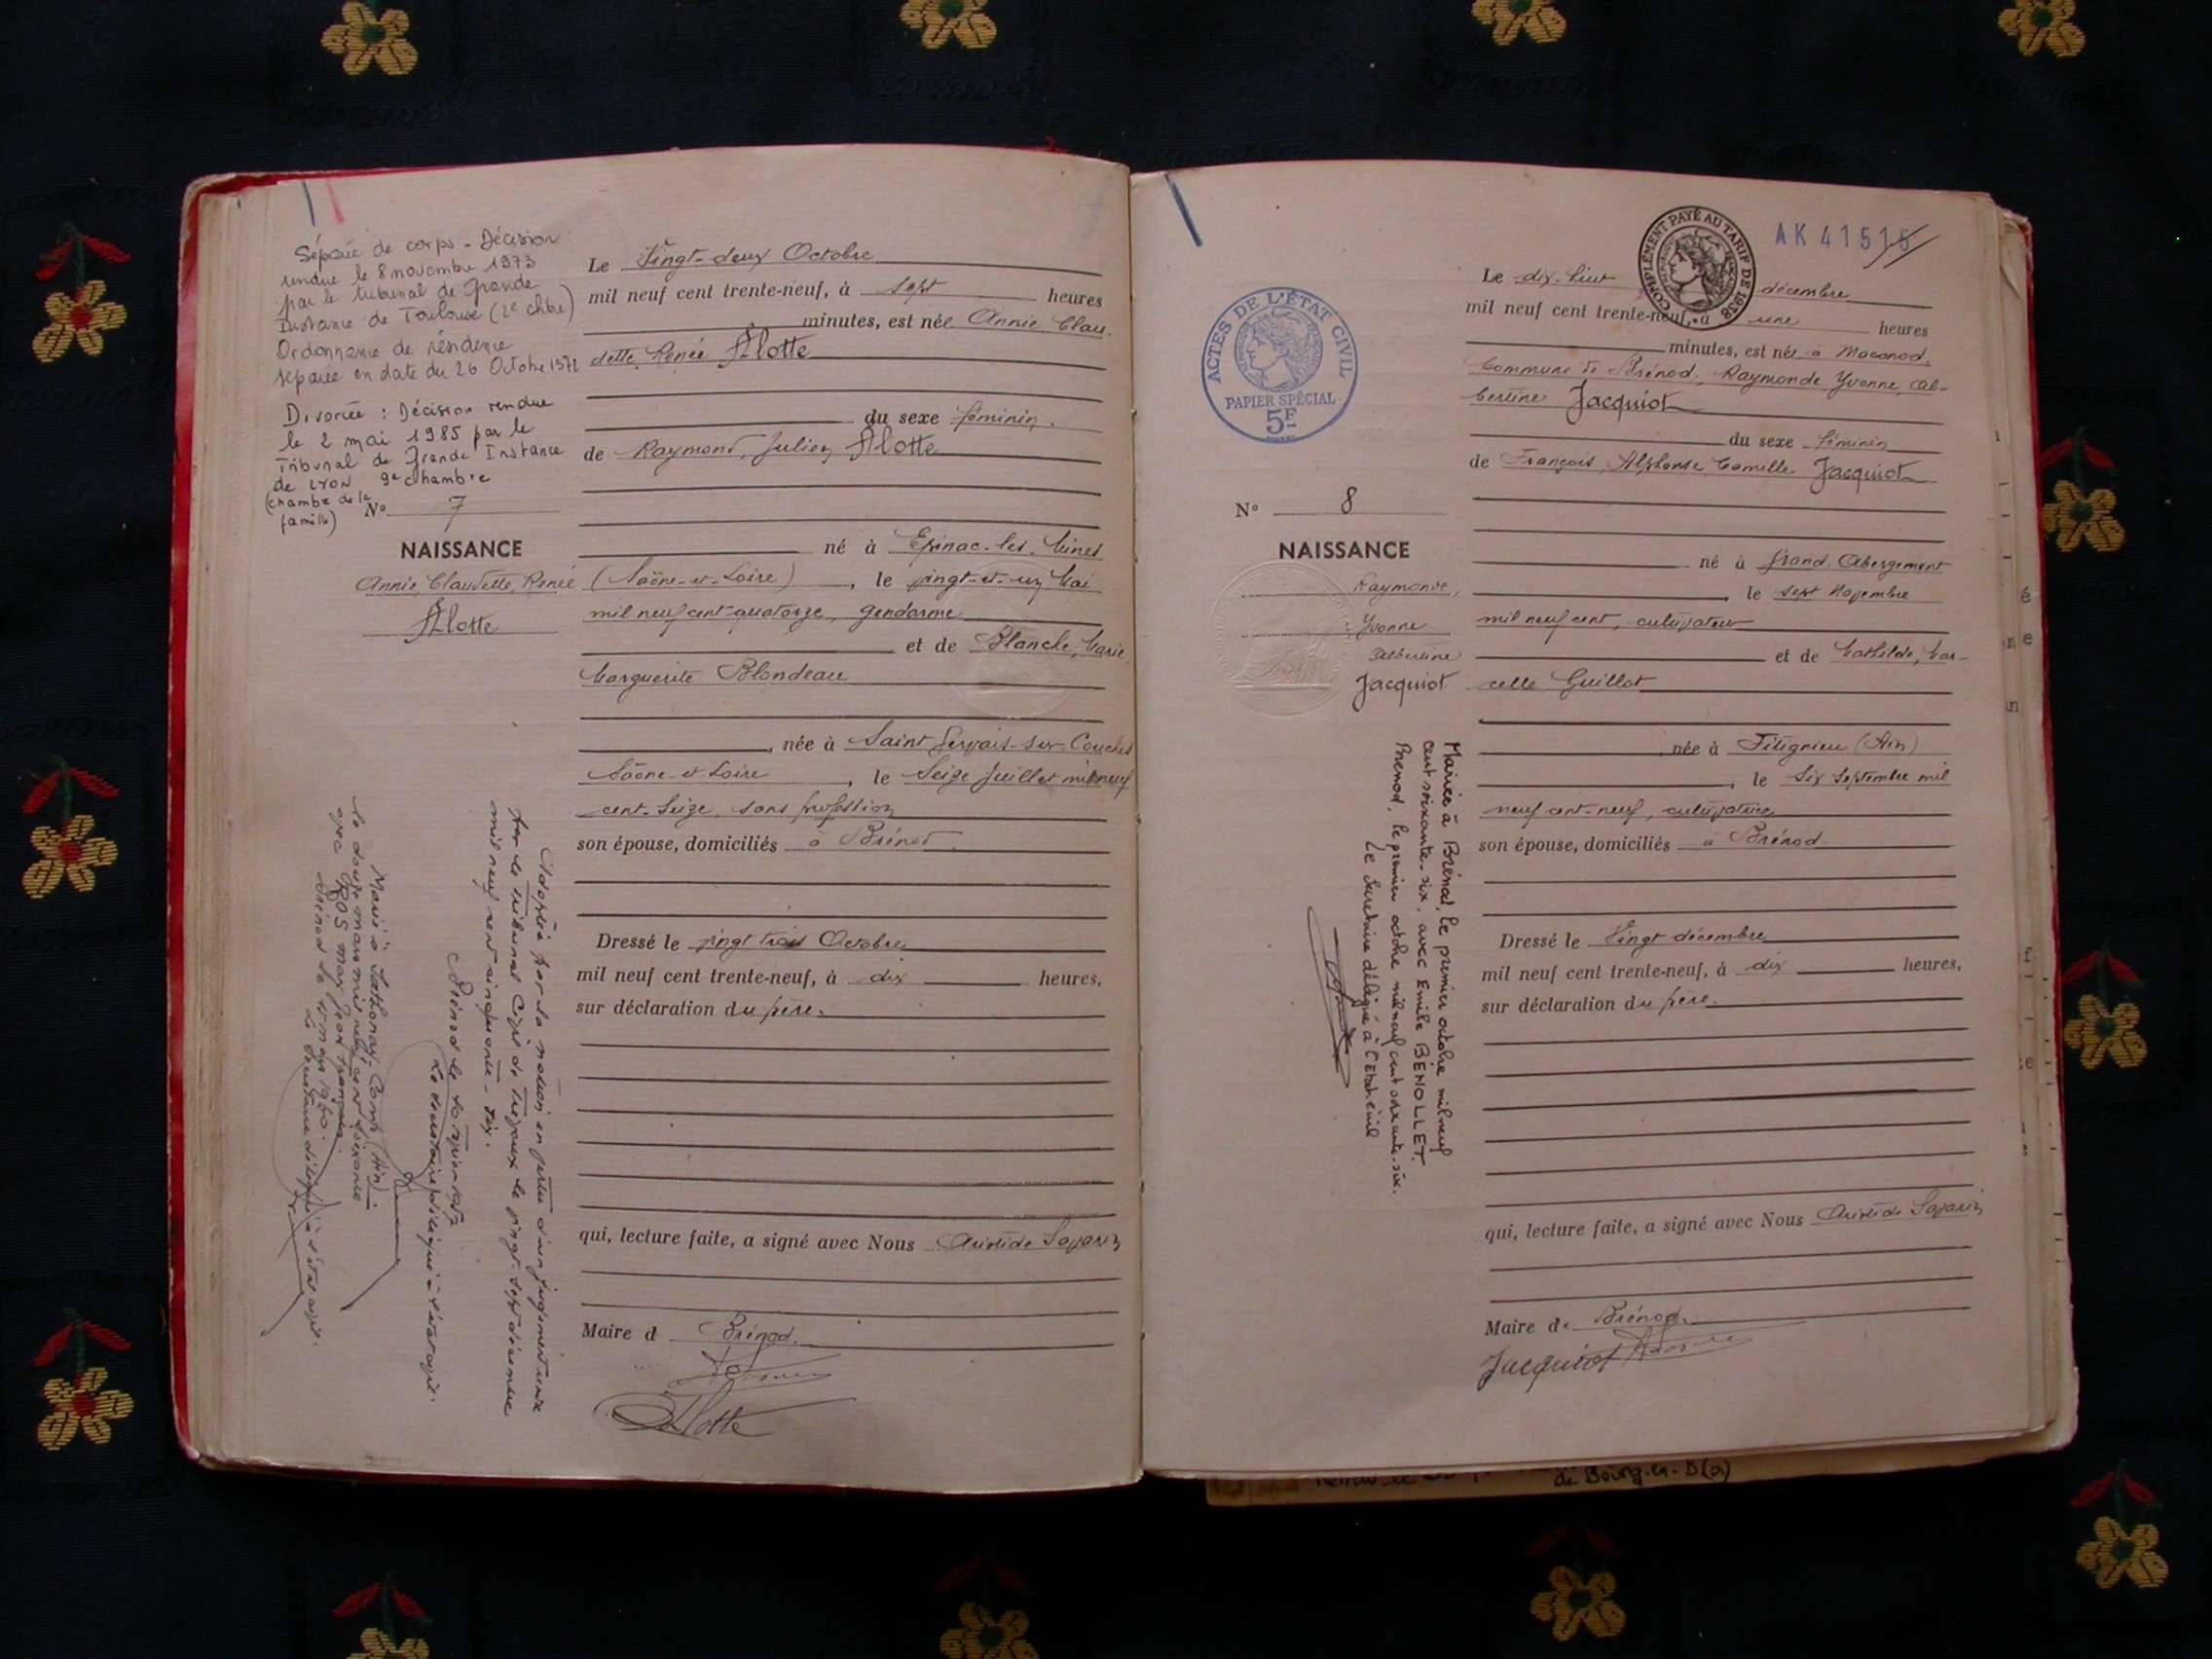 Séparée de corps - Décision
rendue le 8 novembre 1973
par le tribunal de Grande
Instance de Toulouse (2e chbre)
Ordonnance de résidence
séparée en date du 26 Octobre 1972
Divorcée : Décision rendue
le 2 mai 1985 par le
Tribunal de Grande Instance
de LYON 9e chambre
(chambre de la
famille)
N° 7
NAISSANCE
Annie, Claudette, Renée
Flotte
Le Vingt-deux Octobre
mil neuf cent trente-neuf, à sept heures
minutes, est née Annie, Clau-
dette, Renée Flotte
du sexe féminin.
de Raymond, Julien Flotte
né à Epinac-les-Mines
(Saône-et-Loire), le vingt-et-un Mai
mil neuf cent quatorze, gendarme
et de Blanche, Marie
Marguerite Blondeau
, née à Saint Gervais-sur-Couches
Saône-et-Loire, le Seize Juillet mil neuf
cent-seize, sans profession
son épouse, domiciliés à Brénod.
Dressé le vingt trois Octobre
mil neuf cent trente-neuf, à dix heures,
sur déclaration du père.
qui, lecture faite, a signé avec Nous Aristide Savarin
Maire de Brénod.
Flotte
Adoptée par la nation en vertu d'un jugement rendu
par le tribunal Civil de le vingt-sept décembre
mil neuf cent cinquante-six.
Brénod le 1957
Le secrétaire délégué à l'état civil.
Marié à Sathonay-Camp (Ain)
le douze mars mil neuf cent soixante
avec ROS max Jean François
Brénod le mars 1960.
Le secrétaire délégué à l'état civil.
ACTES DE L'ÉTAT CIVIL
PAPIER SPÉCIAL
5F
COMPLÉMENT PAYÉ AU TARIF DE 1938
AK 41515
N° 8
NAISSANCE
Raymonde,
Yvonne
Albertine
Jacquiot
Le dix-huit décembre
mil neuf cent trente-neuf, à une heures
minutes, est née à Maconod,
Commune de Brénod, Raymonde, Yvonne, Al-
bertine Jacquiot
du sexe féminin
de François, Alphonse, Camille Jacquiot
né à Grand Abergement
le sept Novembre
mil neuf cent, cultivateur
et de Mathilde, Mar-
celle Guillot
née à Vitignieu (Ain)
, le Six Septembre mil
neuf cent-neuf, cultivatrice
son épouse, domiciliés à Brénod.
Dressé le Vingt décembre
mil neuf cent trente-neuf, à dix heures,
sur déclaration du père.
qui, lecture faite, a signé avec Nous Aristide Savarin
Maire de Brénod.
Jacquiot
Mariée à Brénod, le premier octobre mil neuf
cent soixante-six, avec Emile BENOLLET.
Brénod, le premier octobre mil neuf cent soixante-six.
Le Secrétaire délégué à l'Etat-civil
de Bourg-en-B(a)